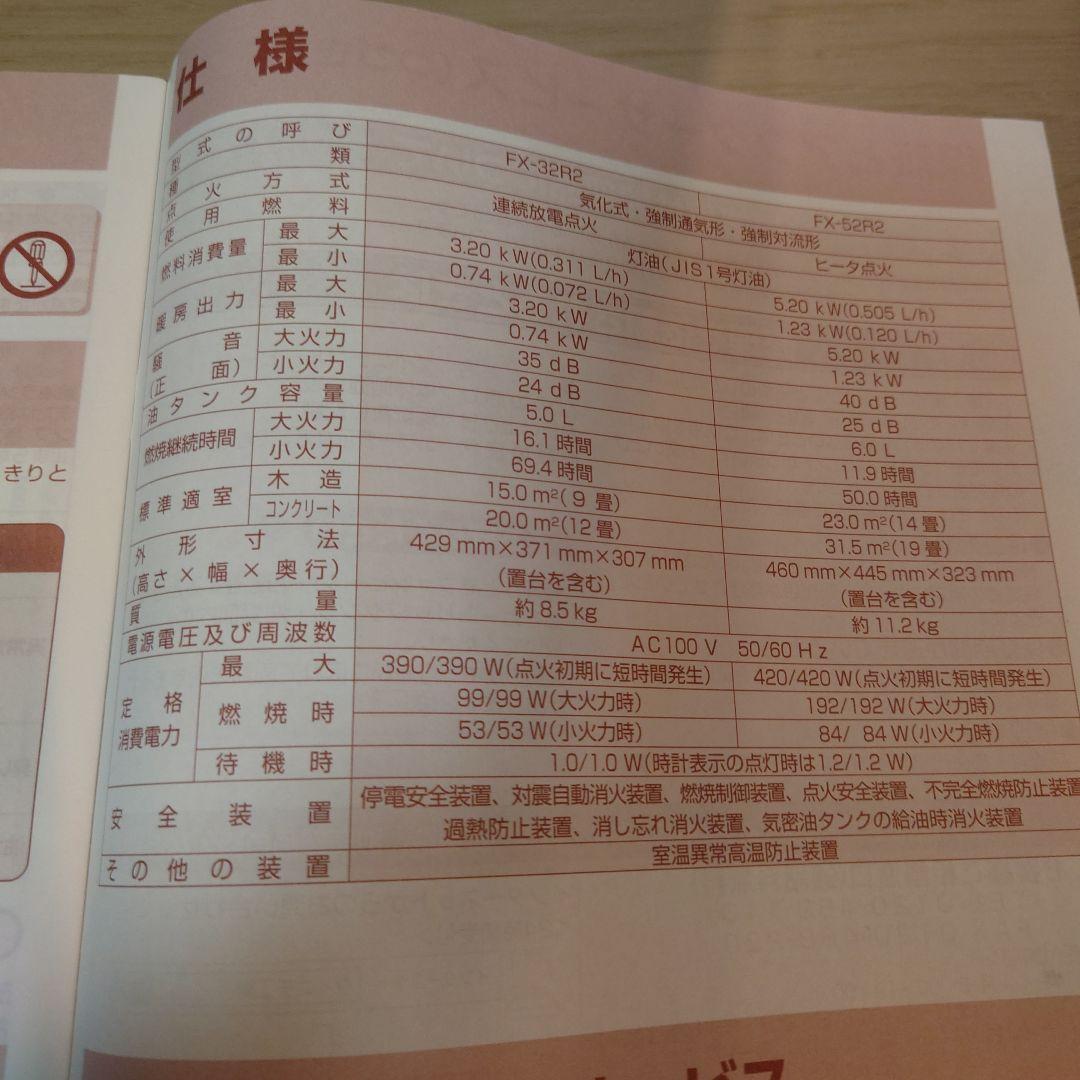 仕様
型式の呼び FX-32R2 FX-52R2
種類 気化式・強制通気形・強制対流形
点火方式 連続放電点火 ヒータ点火
使用燃料 灯油(JIS1号灯油)
燃料消費量 最大 3.20 kW(0.311 L/h) 5.20 kW(0.505 L/h)
最小 0.74 kW(0.072 L/h) 1.23 kW(0.120 L/h)
暖房出力 最大 3.20 kW 5.20 kW
最小 0.74 kW 1.23 kW
騒音(正面) 大火力 35 dB 40 dB
小火力 24 dB 25 dB
油タンク容量 5.0 L 6.0 L
燃焼継続時間 大火力 16.1時間 11.9時間
小火力 69.4時間 50.0時間
標準適室 木造 15.0 m²(9畳) 23.0 m²(14畳)
コンクリート 20.0 m²(12畳) 31.5 m²(19畳)
外形寸法 429 mm×371 mm×307 mm 460 mm×445 mm×323 mm
(高さ×幅×奥行) (置台を含む) (置台を含む)
質量 約8.5 kg 約11.2 kg
電源電圧及び周波数 AC100 V 50/60 Hz
定格消費電力 最大 390/390 W(点火初期に短時間発生) 420/420 W(点火初期に短時間発生)
燃焼時 99/99 W(大火力時) 192/192 W(大火力時)
53/53 W(小火力時) 84/ 84 W(小火力時)
待機時 1.0/1.0 W(時計表示の点灯時は1.2/1.2 W)
安全装置 停電安全装置、対震自動消火装置、燃焼制御装置、点火安全装置、不完全燃焼防止装置
過熱防止装置、消し忘れ消火装置、気密油タンクの給油時消火装置
その他の装置 室温異常高温防止装置
きりと